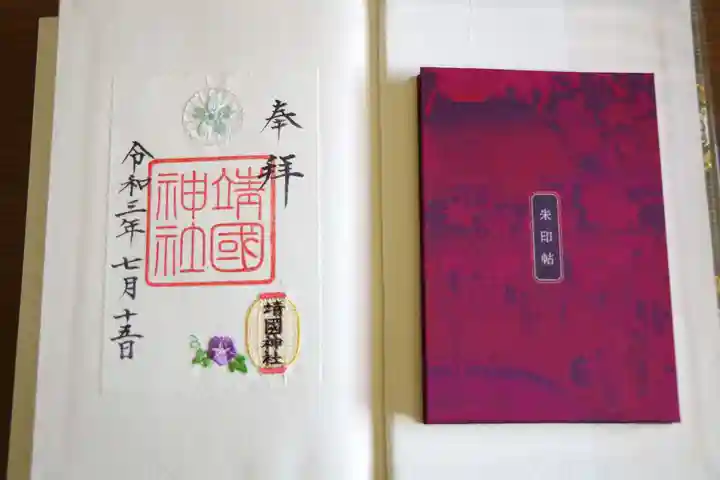 奉拝
靖國神社
令和三年 七月 十五日
靖國神社
朱印帖